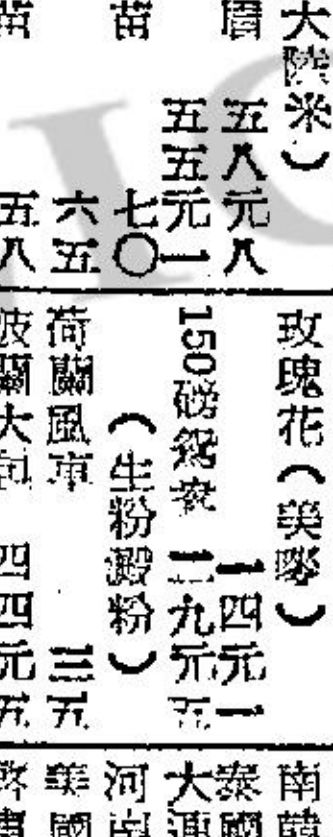 大陸米）
五八元八
五五元一
苗 七〇
六五
苗 五八
玫瑰花（美嘜）
一四元一
150磅鴛鴦 二九元五
（生粉澱粉）
荷蘭風車 三五
波蘭大包 四四元五
南韓
泰國
大連
河南
美國